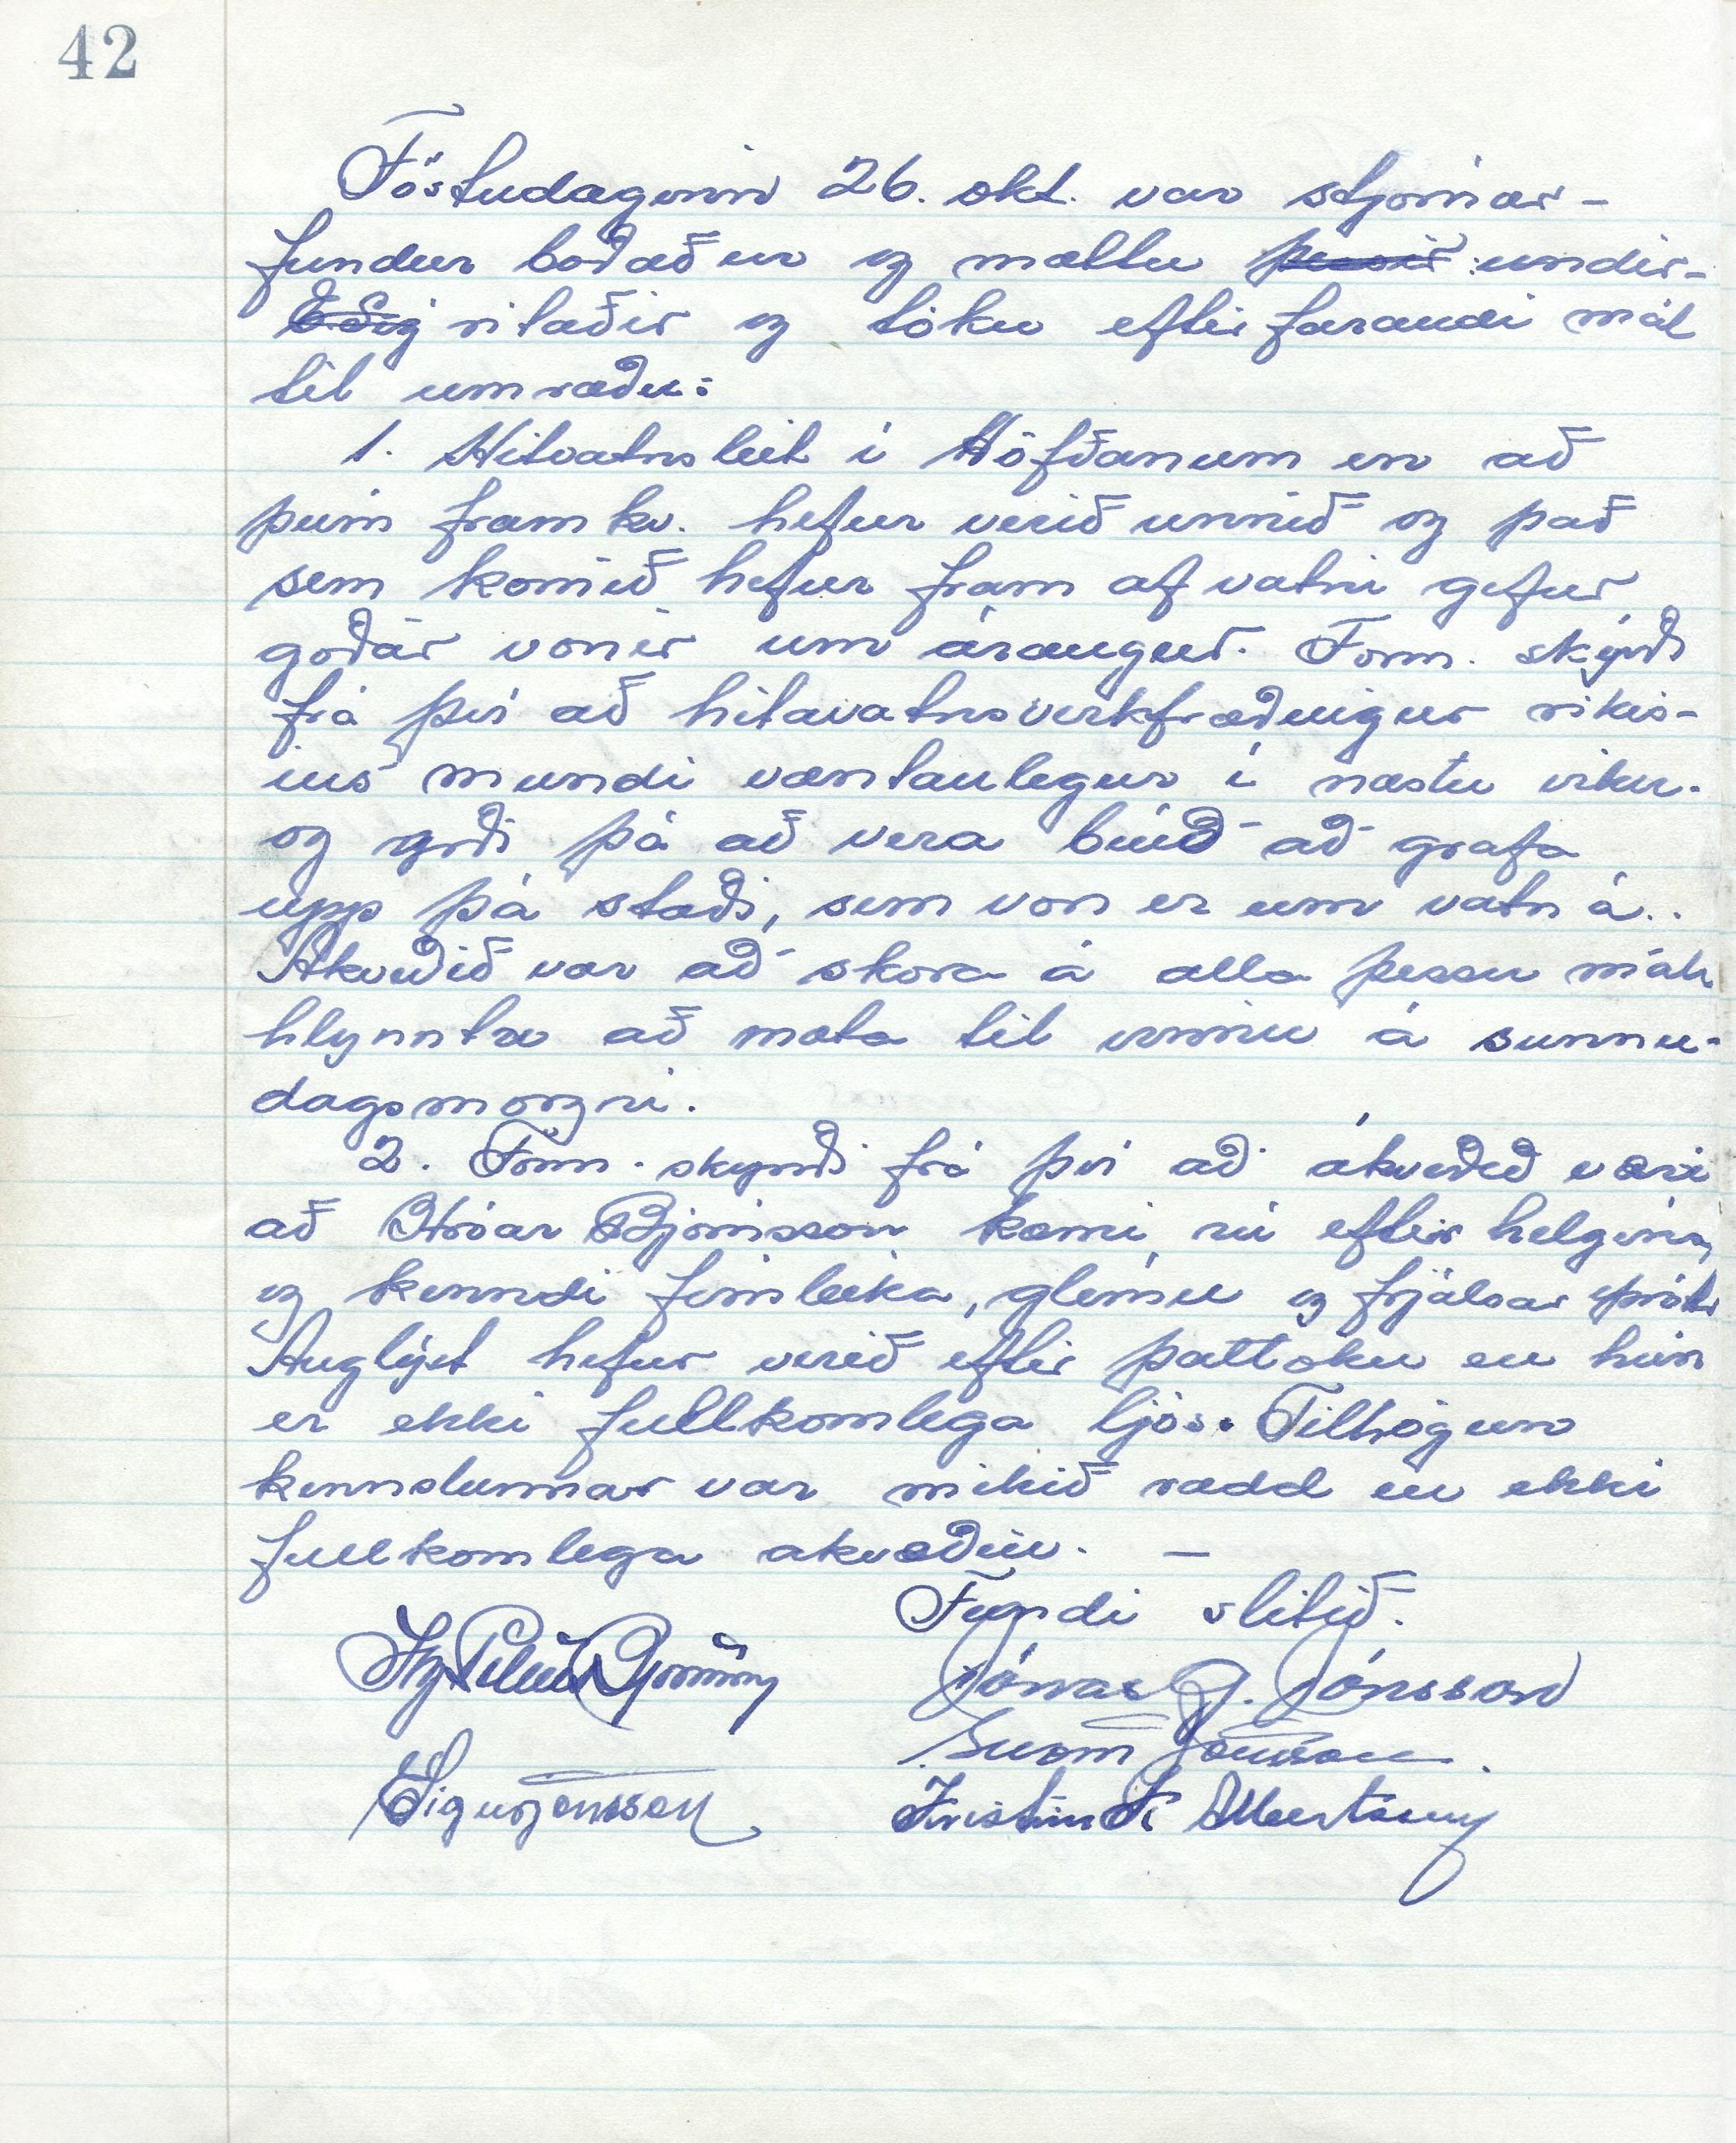 42
Föstudaginn 26. okt. var stjórnar-
fundur boðaður og mættu þessir undir-
ritaðir og tóku eftirfarandi mál
til umræðu:
1. Hitvatnsleit í Höfðanum en að
þeim framkv. hefur verið unnið og það
sem komið hefur fram af vatni gefur
góðar vonir um árangur. Form. skýrði
frá því að hitavatnsverkfræðingur rikis-
ins mundi væntanlegur í næstu viku.
og yrði þá að vera búið að grafa
upp þá staði, sem von er um vatn á..
Akveðið var að skora á alla þessu máli
hlynntu að mæta til vinnu á sunnu-
dagsmorgni.
2. Form. skyrði frá því að ákveðið væri
að Hróar Björnsson kæmi nú eftir helgina
og kenndi fimleika, glímu og frjálsar íþróttir
Auglýst hefur verið eftir þátttöku en hún
er ekki fullkomlega ljós. Tilhögun
kennslunnar var mikið rædd en ekki
fullkomlega akveðin. —
Fundi slitið.
Jónas G. Jónsson
Sigurjónsson